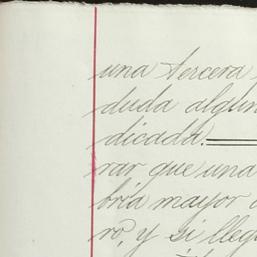 una tercera
duda algun
dicada.
rar que una
bría mayor
ro, y si lleg